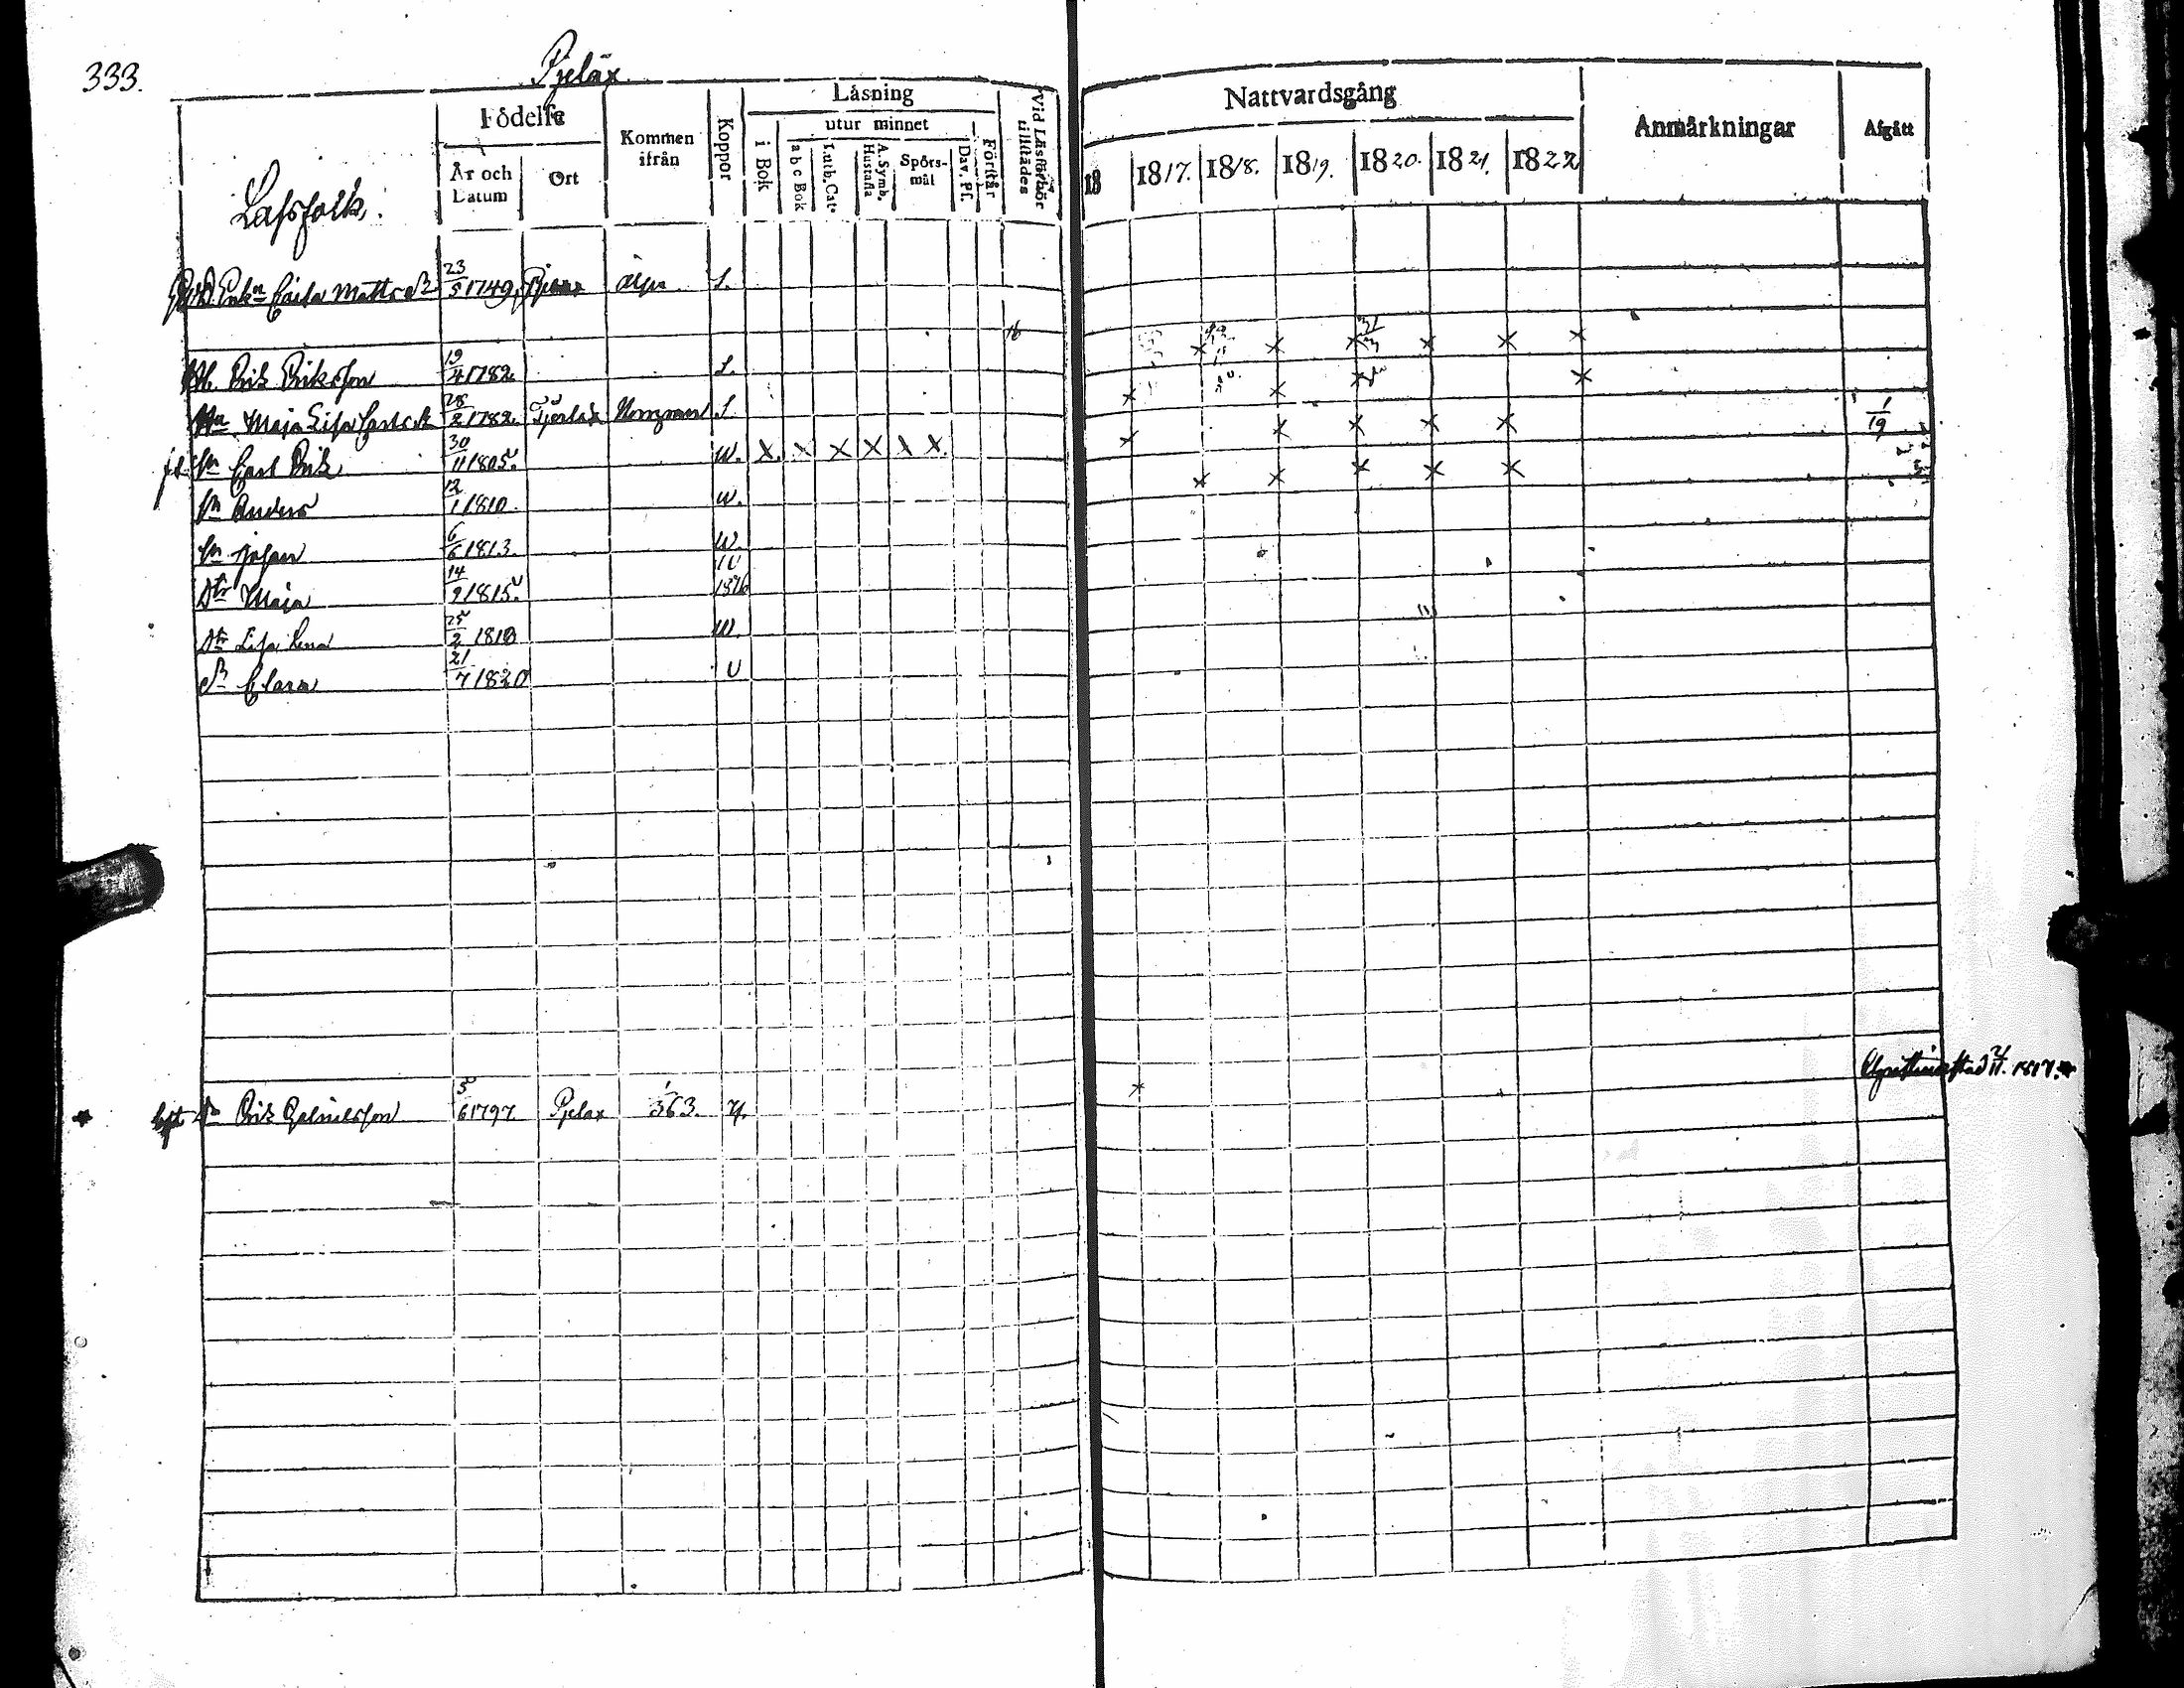 333. Pjelax
Födelse
Kommen ifrån
Koppor
Läsning
utur minnet
i Bok
a b c Bok
Luth. Cat.
A. Symb. Hustafla
Spörs-mål
Dav. Ps.
Förstår
Vid Läsförhör tillstädes
Nattvardsgång
Anmärkningar
Afgått
År och Datum
Ort
18 1817. 1818. 1819. 1820. 1821. 1822
Lassfolk.
Caisa Matts dr 23/5 1749, Pjelax S.
16
Erik Eriksson 19/4 1782 S.
Maja Lisa Carls dr 28/2 1782. S
Sn Carl Erik 30/11 1805. w. X X X X X X
1/19
Sn Anders 12/1 1810 w.
Sn Johan 6/6 1813 w.
Dtr Maja 14/9 1815. 1816
Dtr Lisa Lena 25/2 1818 w.
Dr Clara 21/7 1820 U
Sn Erik Gabrielsson 5/6 1797 Pjelax 363. Christinestad 1817.